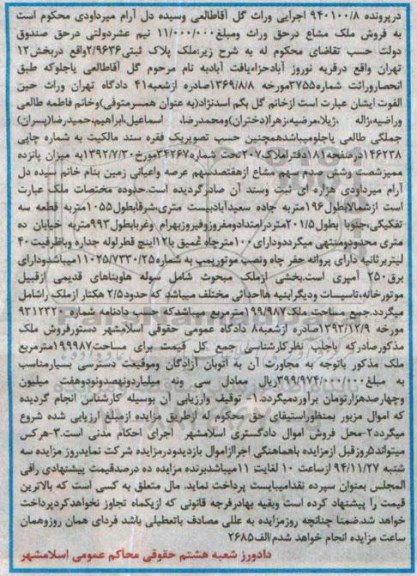 درپرونده ۹۴۰۱۰۰/۸ اجرایی وراث گل آقاطالعی وسیده دل آرام میردا‌ودی محکوم است
به فروش ملک مشاع درحق وراث ومبلغ ۱۱/۰۰۰/۰۰۰ نیم عشردولتی درحق صندوق
دولت حسب تقاضای محکوم له به شرح زیر:ملک پلاک ثبتی۲/۹۶۳۶واقع دربخش۱۲
تهران واقع درقریه نوروز آبادحزاءیافت آبادبه نام مرحوم گل آقاطالعی یاجلوکه طبق
انحصاروراثت شماره۳۷۵۵مورخه ۱۳۶۹/۸/۸صادره ازشعبه۴۱ دادگاه تهران وراث حین
الفوت ایشان عبارت است ازخانم گل بگم اسدنژاد(به عنوان همسرمتوفی)وخانم فاطمه طالعی
وراضیه،نژاله ،ژیلا،مرضیه،زهرا(دختران)ومحمدرضا اسماعیل،ابراهیم،حمیدرضا(پسران)
جملگی طالعی یاجلومیباشدهمچنین حسب تصویریک فقره سند مالکیت به شماره چاپی
۱۴۶۲۳۸درصفحه۱۸۱دفتراملاک۲۰۷تحت شماره۳۴۲۶۷مورخ۱۳۹۲/۷/۳۰به میزان پانزده
ممیزشصت وشش صدم سهم مشاع ازهفتصدسهم عرصه واعیانی زمین بنام خانم سیده دل
آرام میرداودی هزاری ای ثبت وسند آن صادرگردیده است.حدوده مختصات ملک عبارت
است ازشمالابطول۱۹۶متربه جاده سعیدآبادبیست متری،شرقابطول۱۰۵۵متربه قطعه سه
تفکیکی،جنوبا بطول۲۰۱/۵متردرامتدادومفروزوفیروزبهرام وغربابطول۹۹۳متربه خیابان ده
متری محدودومنتهی میگرددودارای۱۰۰مترچاه عمیق با۱۲اینچ قطرلوله جداره وباظرفیت۴۰
لیتربرثانیه دارای پروانه حفر چاه ونصب موتورپمپ به شماره۱۱۰۲۵/۷۲۳۰/۲۵میباشدودارای
برق۲۵۰ آمپری است.بخشی ازملک مبحوث شامل سوله هاوبناهای قدیمی ازقبیل
موتورخانه،تاسیسات ودیگرابنیه هااحداثی مختلف میباشد که حدود۲/۵ هکتار ازملک راشامل
میگردد.جمع مساحت ملک۱۹۹/۹۸۷مترمربع میباشدکه حسب دادنامه شماره ۹۲۱۲۳۲۰
مورخه ۱۳۹۲/۱۲/۹صادره ازشعبه۸ دادگاه عمومی حقوقی اسلامشهر دستورفروش ملک
مذکورصادرکه باجلب نظرکارشناسی جمع کل قیمت برای مساحت۱۹۹۹۸۷مترمربع
ملک مذکور باتوجه به مجاورت آن به اتوبان آزادگان وموقعیت دسترسی بسیارمناسب
به مبلغ۳۹۹/۹۷۴/۰۰۰/۰۰۰ریال معادل سی ونه میلیاردونهصدونودوهفت میلیون
وچهارصدهزارتومان برآوردمیگردد.۱- توقیف وارزیابی آن بوسیله کارشناس انجام گردیده
که اموال مزبور بمنظوراستیفای حق محکوم له ازطریق مزایده ازمبلغ ارزیابی شده شروع
میگردد۲-محل فروش اموال دادگستری اسلامشهر اجرای احکام مدنی است.۳-هرکس
میتواند۵روزقبل ازمزایده باهماهنگی اجرااز‌اموال بازدیدودرمزایده شرکت نمایدروز مزایده سه
شنبه ۹۴/۱۱/۲۷ ازساعت ۱۰ لغایت ۱۱میباشدبرنده مزایده ده درصدقیمت پیشنهادی رافی
المجلس بعنوان سپرده نقدامیبایست پرداخت نماید. مال متعلق به کسی است که بالاترین
قیمت را پیشنهاد کرده است وبقیه بهادرفرجه قانونی که ازیکماه تجاوز نخواهدکردپرداخت
خواهد شد.ضمنا چنانچه روزمزایده به عللی مصادف باتعطیلی باشد فردای همان روزوهمان
ساعت مزایده انجام خواهد شدم/الف۲۶۸۵
دادورز شعبه هشتم حقوقی محاکم عمومی اسلامشهر